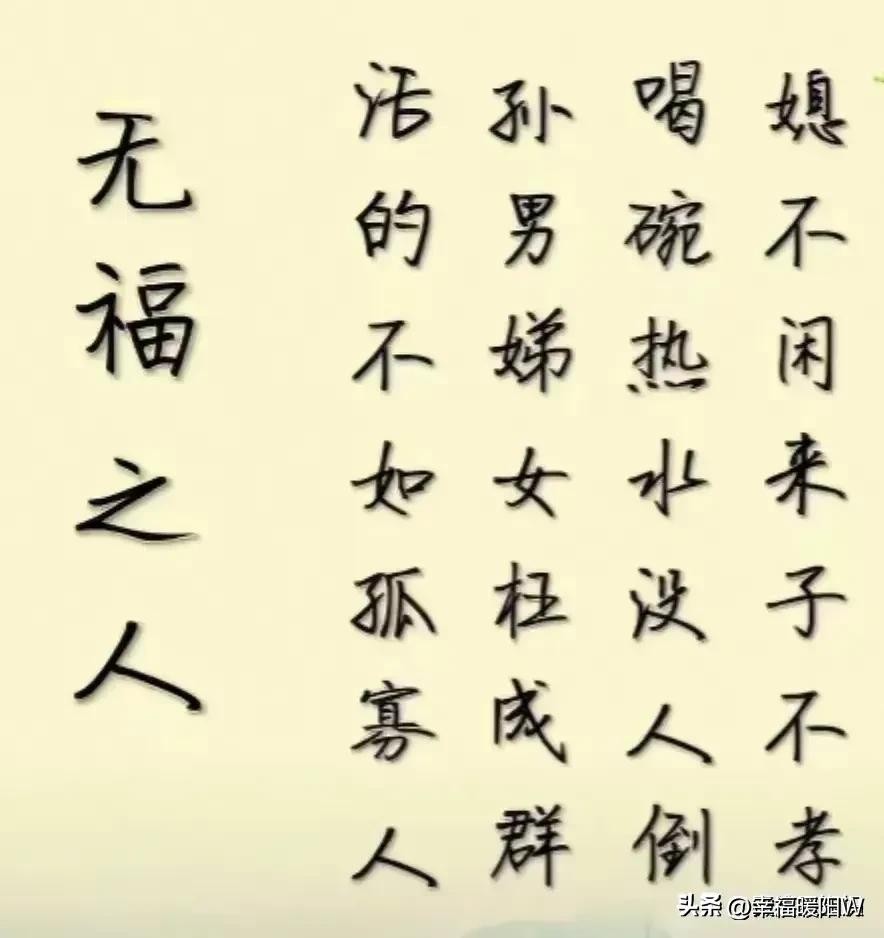 媳不闲来子不孝
喝碗热水没人倒
孙男娣女枉成群
活的不如孤寡人
无福之人
头条 @幸福暖阳